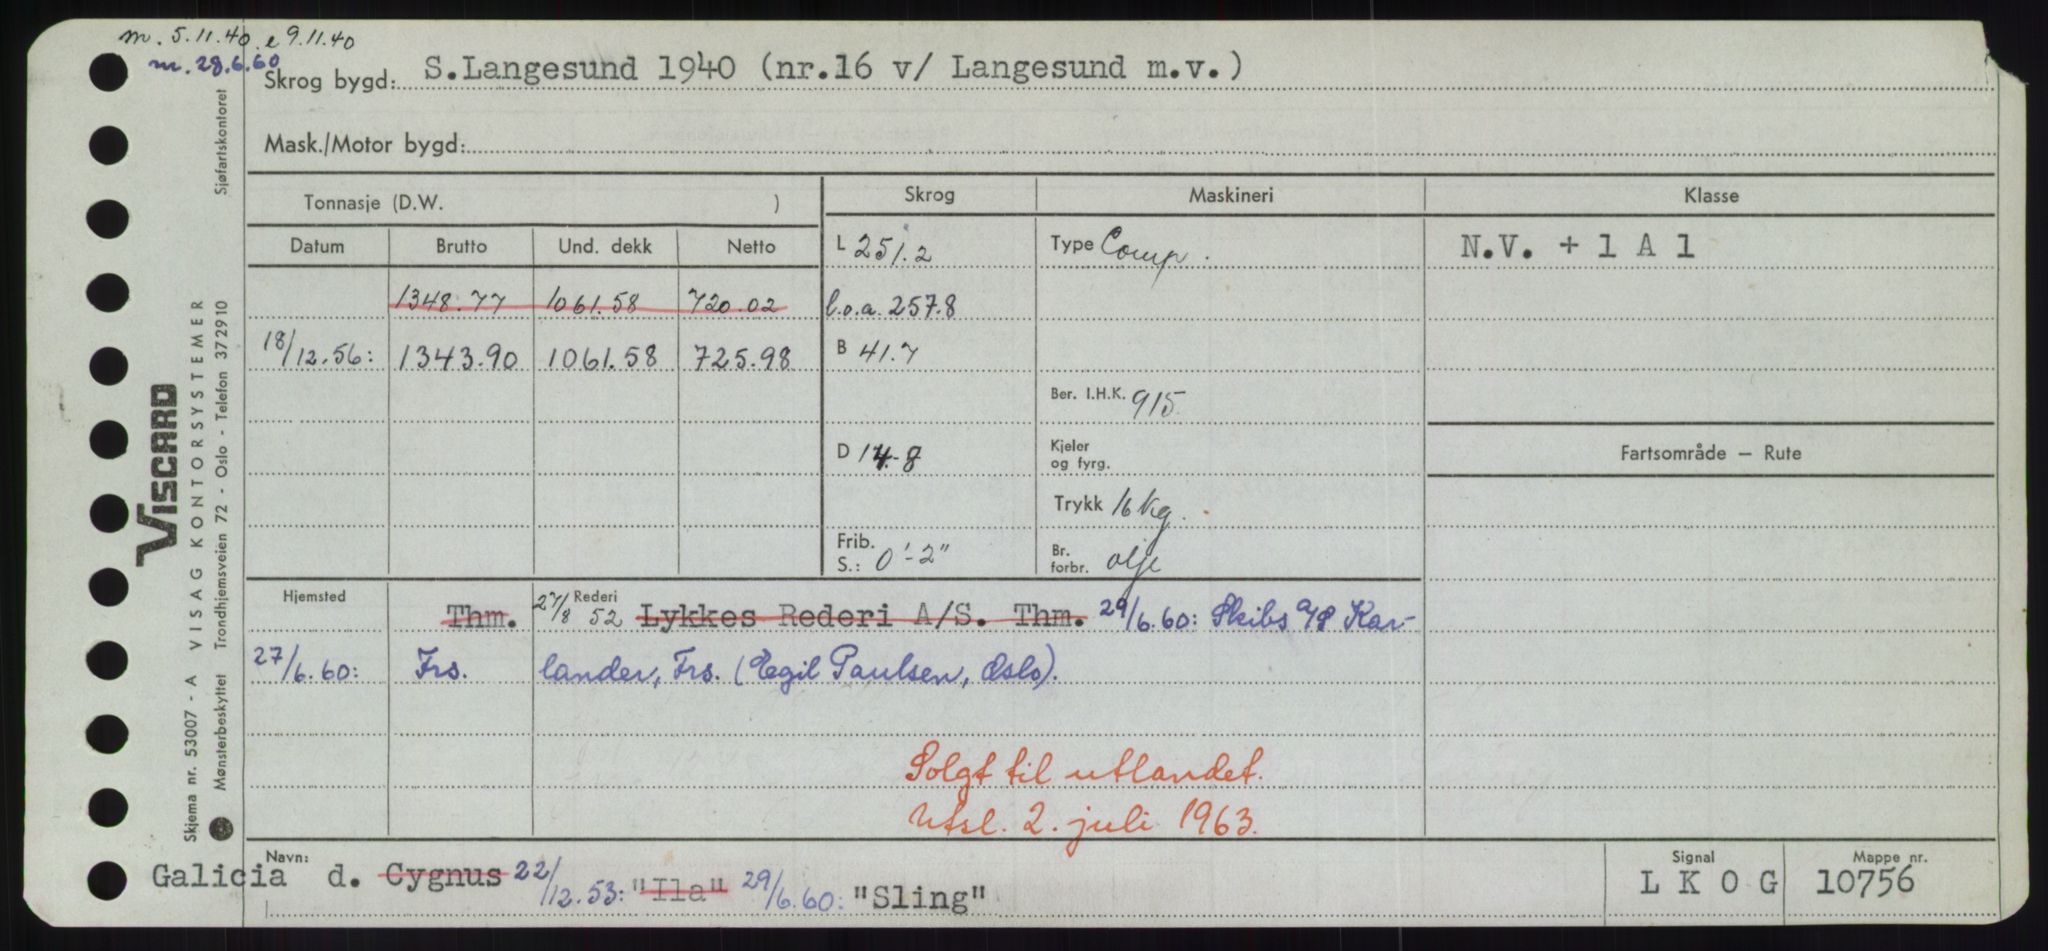 m. 5.11.40. e 9.11.40
m. 28.6.60
Skrog bygd: S.Langesund 1940 (nr.16 v/ Langesund m.v.)
Mask./Motor bygd:
Tonnasje (D.W. )
Skrog
Maskineri
Klasse
Datum Brutto Und. dekk Netto
L 251.2
Type Comp.
N.V. + 1 A 1
1348.77 1061.58 720.02
l.o.a. 257.8
18/12.56: 1343.90 1061.58 725.98
B 41.7
Ber. I.H.K. 915
Fartsområde – Rute
D 14.8
Kjeler
og fyrg.
Trykk 16 kg.
Frib.
S.: 0'-2"
Br.
forbr. olje
Hjemsted Thm. 27/8 52 Rederi Lykkes Rederi A/S. Thm. 29/6.60: Skibs A/S Kar-
27/6.60: Frs. lander, Frs. (Egil Paulsen, Oslo).
Solgt til utlandet.
Utsl. 2. juli 1963.
Navn: Galicia d. Cygnus 22/12.53: "Ila" 29/6.60: "Sling"
Signal L K O G
Mappe nr. 10756
VISCARD
Skjema nr. 53007 - A VISAG KONTORSYSTEMER
Mønsterbeskyttet Trondhjemsveien 72 - Oslo - Telefon 372910
Sjøfartskontoret